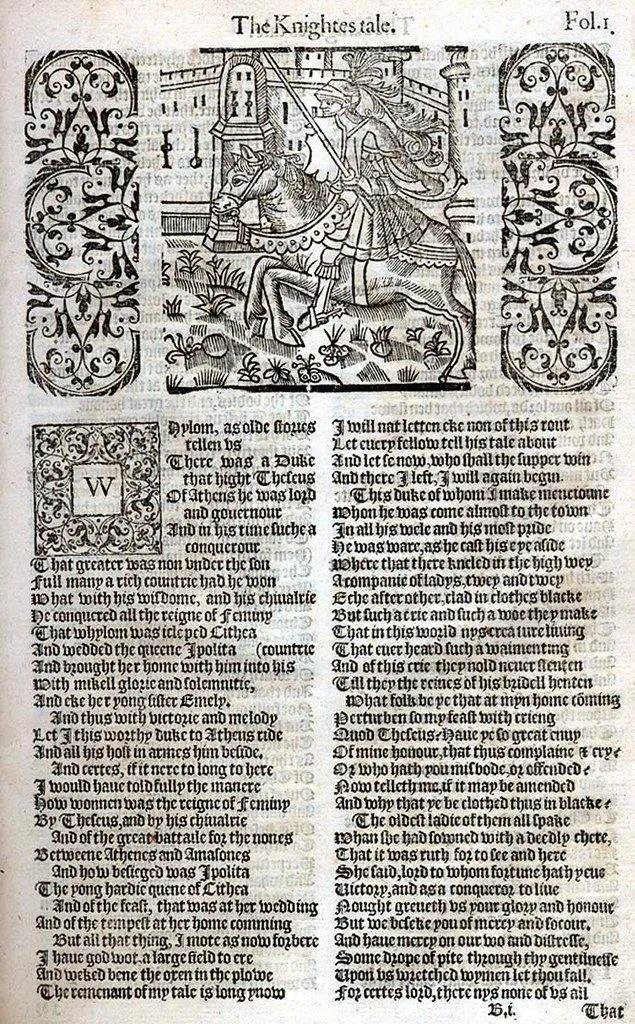 The Knightes tale. Fol.1.
WHylom, as olde stories
tellen vs
There was a Duke
that hight Theseus
Of Athens he was lord
and gouernour
And in his time suche a
conquerour
That greater was non vnder the son
Full many a rich countrie had he won
What with his wisdome, and his chiualrie
He conquered all the reigne of Feminy
That whylom was icleped Cithea
And wedded the queene Ipolita (countrie
And brought her home with him into his
With mikell glorie and solemnitie,
And eke her yong sister Emely.
And thus with victorie and melody
Let I this worthy duke to Athens ride
And all his host in armes him beside.
And certes, if it nere to long to here
I would haue told fully the manere
How wonnen was the reigne of Feminy
By Theseus, and by his chiualrie
And of the great battaile for the nones
Betweene Athenes and Amasones
And how besieged was Ipolita
The yong hardie quene of Cithea
And of the feast, that was at her wedding
And of the tempest at her home comming
But all that thing, I mote as now forbere
I haue god wot, a large field to ere
And weked bene the oxen in the plowe
The remenant of my tale is long ynow
I will nat letten eke non of this rout
Let euery fellow tell his tale about
And let se now, who shall the supper win
And there I left, I will again begin.
This duke of whom I make mencioune
Whon he was come almost to the town
In all his wele and his most pride
He was ware, as he cast his eye aside
Where that there kneled in the high wey
A companie of ladys, twey and twey
Eche after other, clad in clothes blacke
But such a crie and such a woe they make
That in this world nys creature liuing
That euer heard such a waimenting
And of this crie they nold neuer stenten
Till they the reines of his bridell henten
What folk be ye that at myn home cōming
Perturben so my feast with crieng
Quod Theseus: Haue ye so great enuy
Of mine honour, that thus complaine & cry?
Or who hath you misbode, or offended?
Now telleth me, if it may be amended
And why that ye be clothed thus in blacke?
The oldest ladie of them all spake
Whan she had sowned with a deedly chere,
That it was ruth for to see and here
She said, lord to whom fortune hath yeue
Victory, and as a conqueror to liue
Nought greueth vs your glory and honour
But we beseke you of mercy and socour.
And haue mercy on our wo and distresse,
Some drope of pite through thy gentilnesse
Upon vs wretched wymen let thou fall.
For certes lord, there nys none of vs all
B.i. That